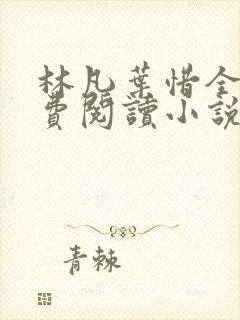 林凡葉惜全
費閱讀小說
青棘